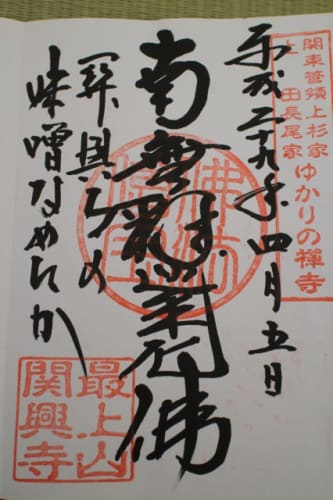 関東管領上杉家
上田長尾家
ゆかりの禪寺
平成二十九年四月五日
南無釋迦牟尼佛
佛法僧宝
関興寺の
味噌なめたか
最上山
関興寺